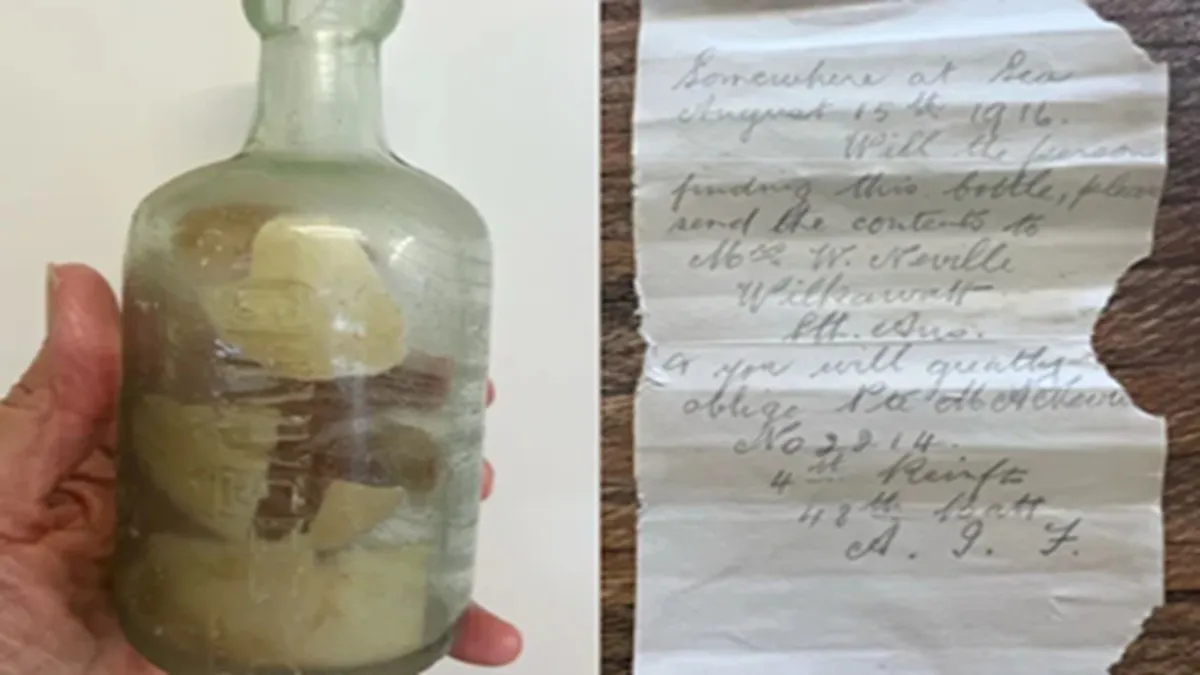 Somewhere at Sea
August 15th 1916.
Will the person
finding this bottle, please
send the contents to
Mrs W. Neville
Wilkawatt
Sth. Aus.
& you will greatly
oblige Pte M A Neville
No
4th Reinft
48th Batt
A. I. F.